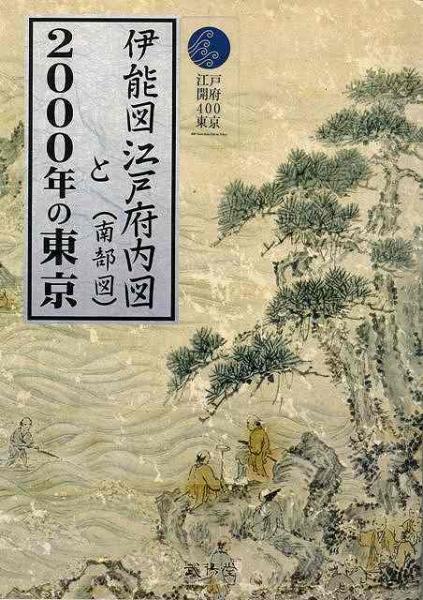 江戸
開府
400
東京
伊能図江戸府内図
(南部図)
と
2000年の東京
武揚堂